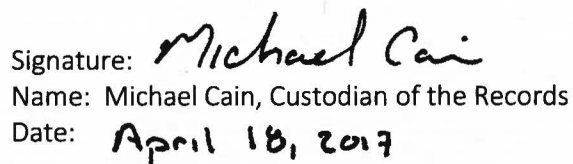 Signature: Michael Cain
Name: Michael Cain, Custodian of the Records
Date: April 18, 2017